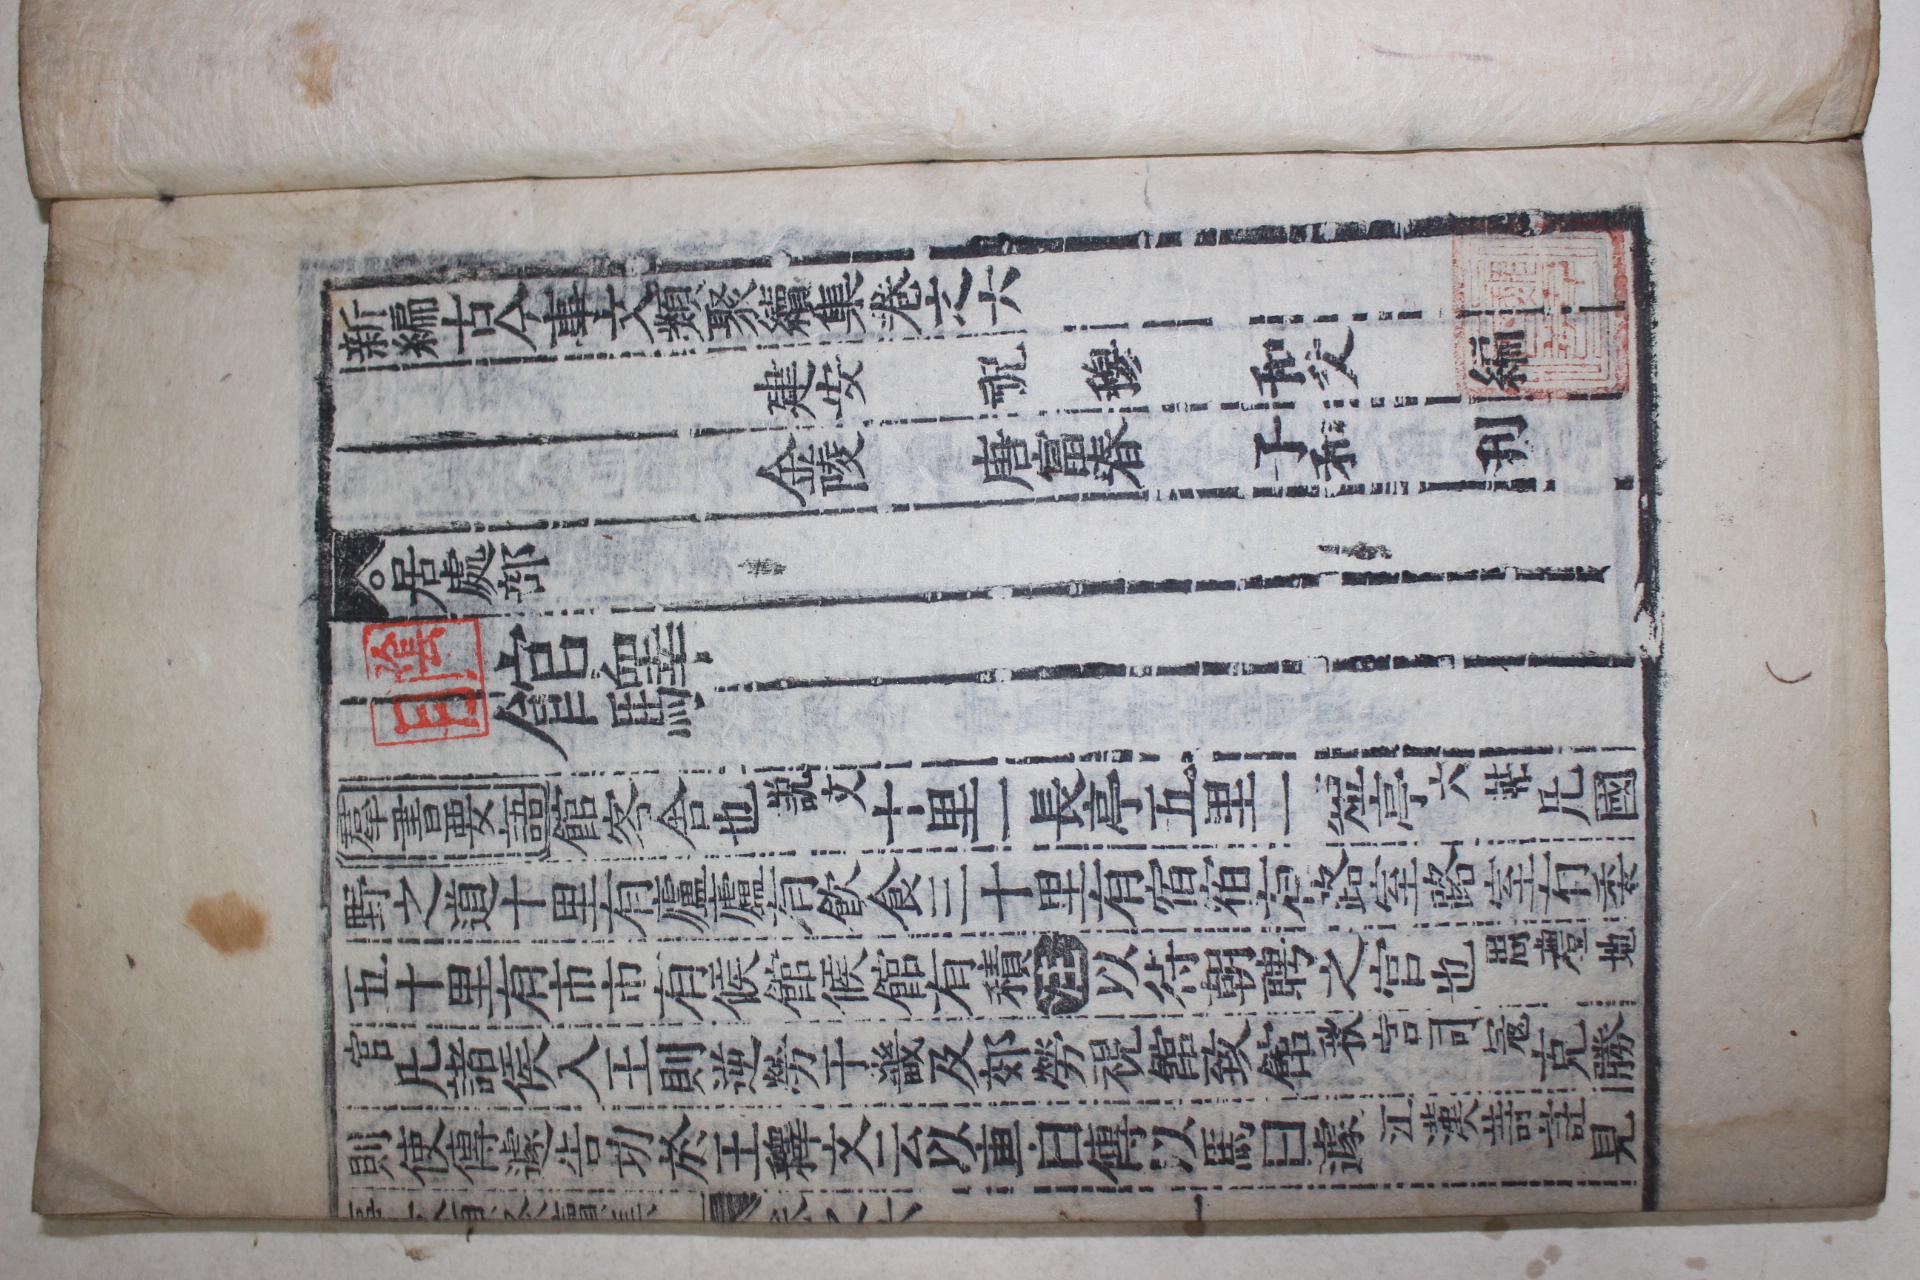 新編古今事文類聚續集卷之六
建安 祝穆 和父 編
金陵 唐富春 子和 刊
居處部
館驛
羣書要語 館客舍也 說文 十里一長亭五里一短亭 六帖 凡國
野之道十里有廬廬有飲食三十里有宿宿有路室路室有委
五十里有市市有候館候館有積 注 以待朝聘之官也 周禮地
官 凡諸侯入王則逆勞于畿及郊勞視館致館 秋官司寇 克勝
則使傳遽告功於王釋文云以車曰傳以馬曰遽 江漢詩註 見